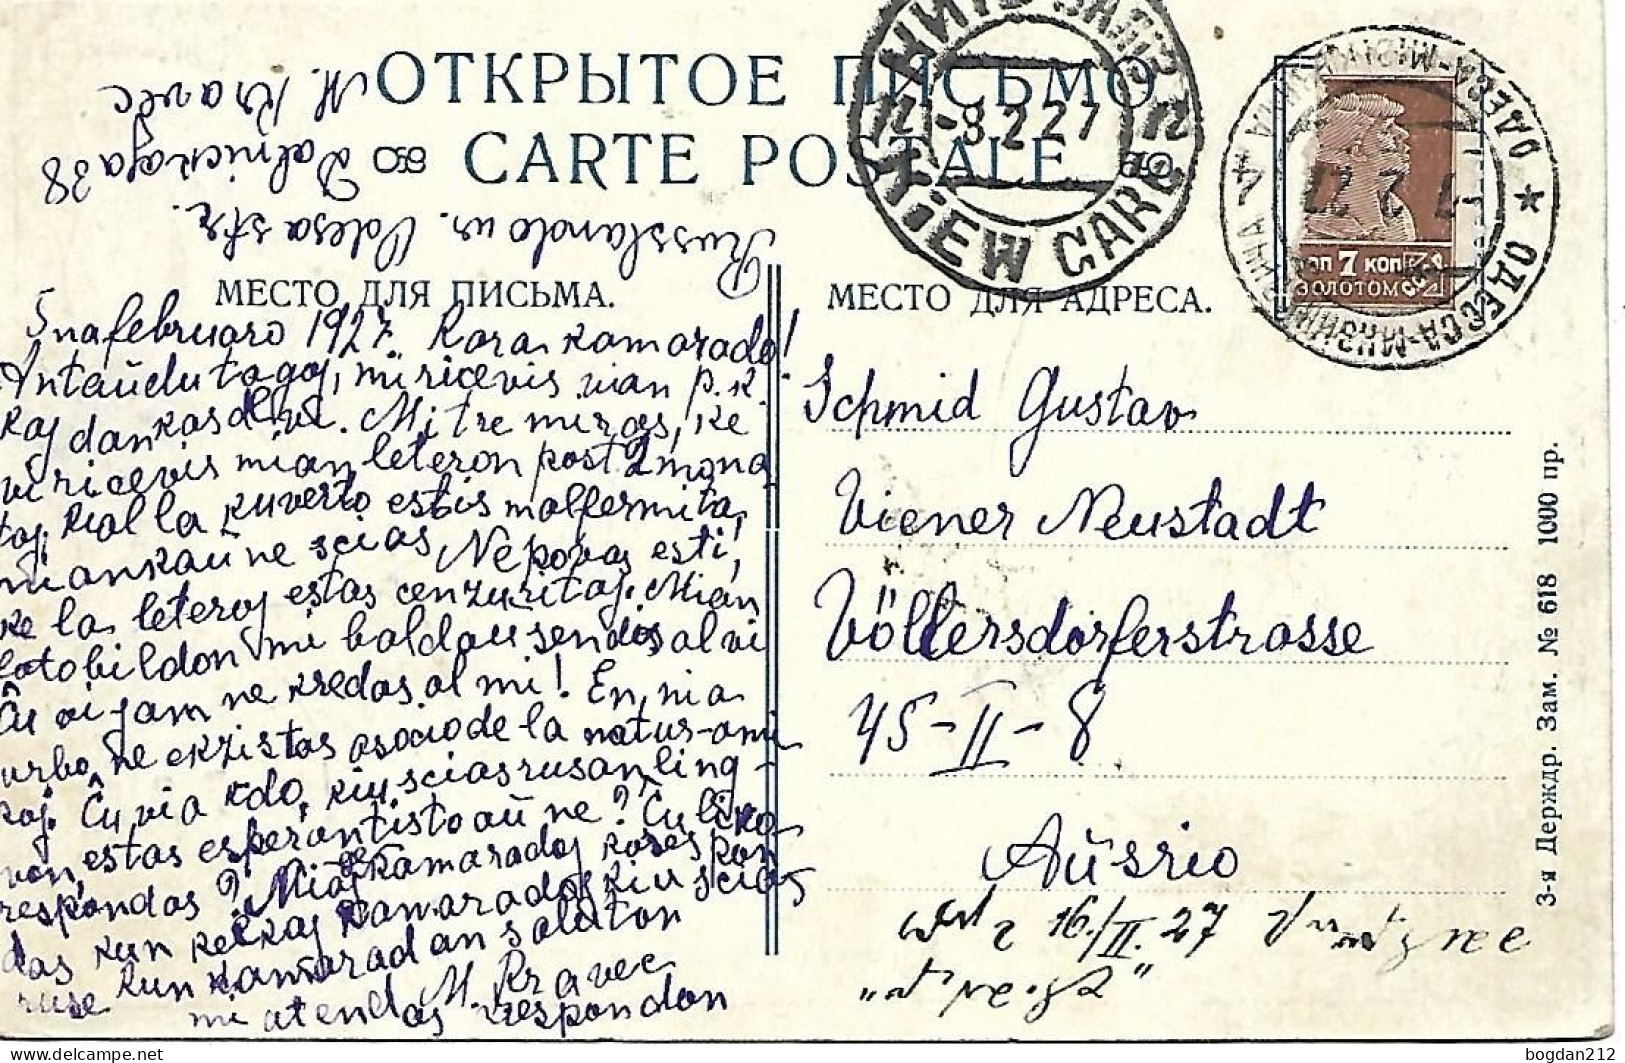 ОТКРЫТОЕ ПИСЬМО
CARTE POSTALE
M. Kravec
Dalnickaja 38
Odesa str.
Russlando ur.
R
КИЇВ ВАПР.
-8.2.27
KIEW GARE
ОДЕСА ★ ОДЕССА
7 2 27
КОП 7 КОП
ЗОЛОТОМ
МЕСТО ДЛЯ ПИСЬМА.
МЕСТО ДЛЯ АДРЕСА.
5 na februaro 1927. Kara kamarado!
Antaŭ du tagoj, mi ricevis vian p.k.
kaj dankas al vi. Mi tre miras, ke
vi ricevis mian leteron post 2 mona
toj. Kial la kuverto estis malfermita,
mi ankaŭ ne scias. Ne povas esti,
ke la leteroj estas cenzuritaj. Mian
fotobildon mi baldaŭ sendos al vi
Ĉu vi jam ne kredas al mi! En nia
urbo ne ekzistas asocio de la natur-ami
koj. Ĉu via kdo, kiu scias rusan ling-
von, estas esperantisto aŭ ne? Ĉu li ko-
respondas? Miaj kamaradoj korespon
das kun kelkaj kamaradoj kiu scias
ruse. Kun kamaradan saluton
M. Kravec
mi atendas respondon
Schmid Gustav
Viener Neustadt
Völlersdorferstrasse
45-II-8
Aŭsrio
16./II.27
3-я Держдр. Зам. № 618 1000 пр.
bogdan212